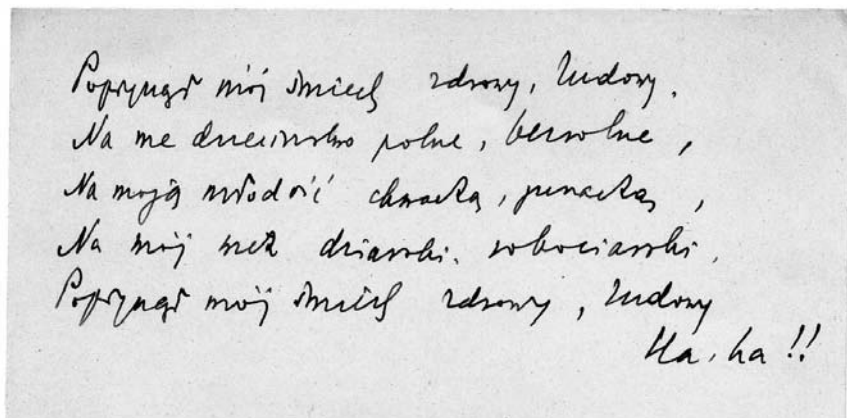 mój śmiech zdrowy, ludowy.
Na me dzieciństwo polne, bezrolne,
Na moją młodość chwacką, junacką,
Na mój dziarski, robociarski,
mój śmiech zdrowy, ludowy
Ha, ha!!